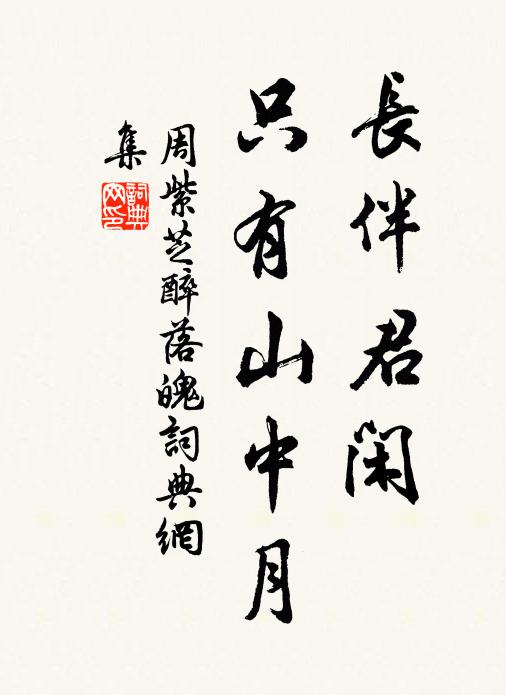 長伴君閑
只有山中月
周紫芝醉落魄詞典網
集
詞典
网印